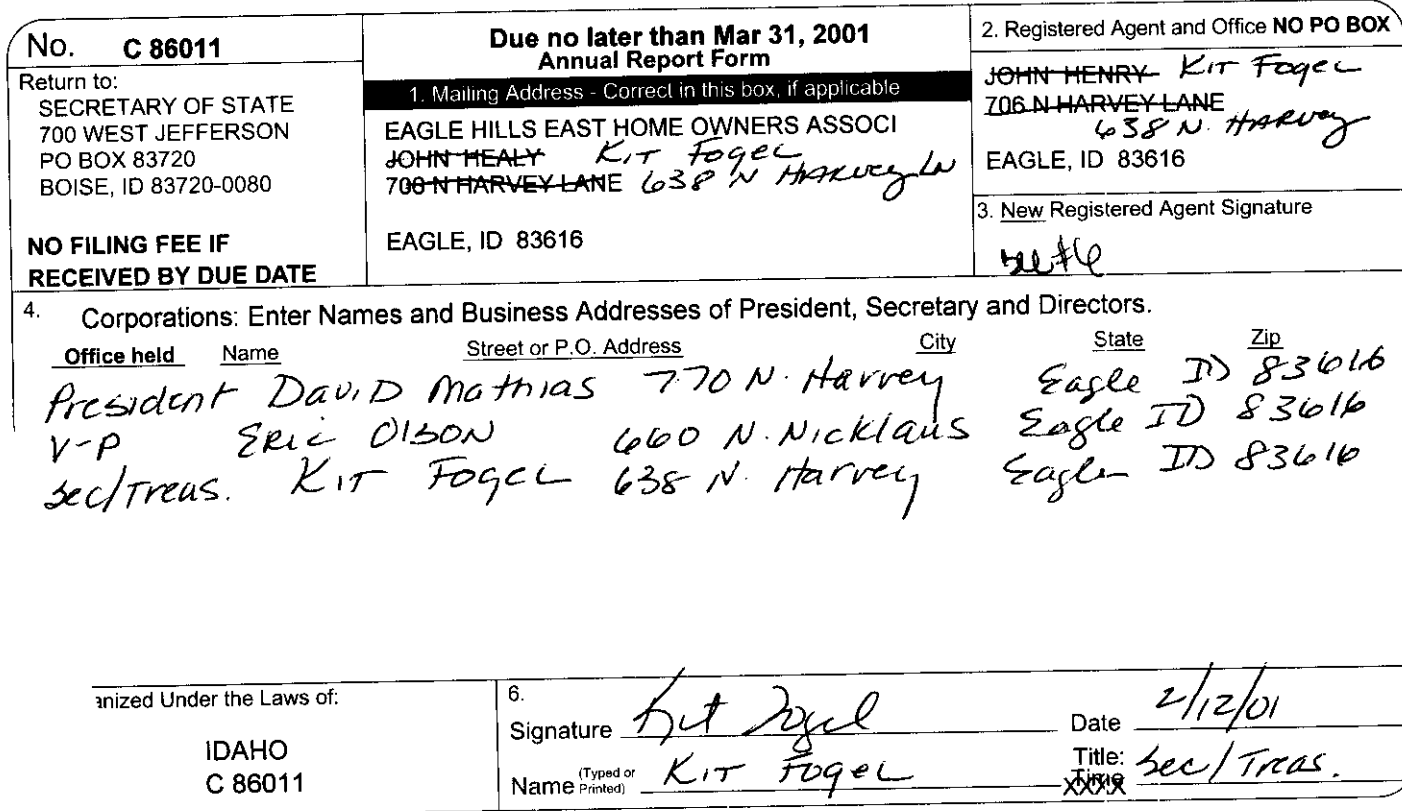 No. C 86011
Return to:
SECRETARY OF STATE
700 WEST JEFFERSON
PO BOX 83720
BOISE, ID 83720-0080
NO FILING FEE IF
RECEIVED BY DUE DATE
Due no later than Mar 31, 2001
Annual Report Form
1. Mailing Address - Correct in this box, if applicable
EAGLE HILLS EAST HOME OWNERS ASSOCI
JOHN HEALY Kit Fogel
706 N HARVEY LANE 638 N Harvey Ln
EAGLE, ID 83616
2. Registered Agent and Office NO PO BOX
JOHN HENRY Kit Fogel
706 N HARVEY LANE
638 N. Harvey
EAGLE, ID 83616
3. New Registered Agent Signature
see #6
4. Corporations: Enter Names and Business Addresses of President, Secretary and Directors.
Office held Name Street or P.O. Address City State Zip
President David Mathias 770 N. Harvey Eagle ID 83616
V-P Eric Olson 660 N. Nicklaus Eagle ID 83616
Sec/Treas. Kit Fogel 638 N. Harvey Eagle ID 83616
anized Under the Laws of:
IDAHO
C 86011
6.
Signature Kit Fogel Date 2/12/01
Name (Typed or Printed) Kit Fogel Title: Sec/Treas.